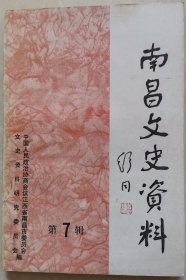 南昌文史资料
舒同
第7辑
中国人民政治协商会议江西省南昌市委员会
文史资料研究委员会编